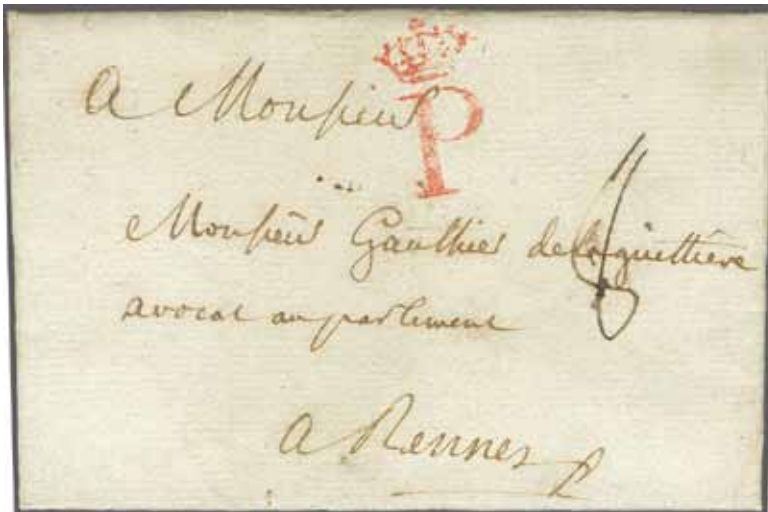 P
a Monsieur
Monsieur Gaulthier de la guettiere
avocat au parlement
a Rennes